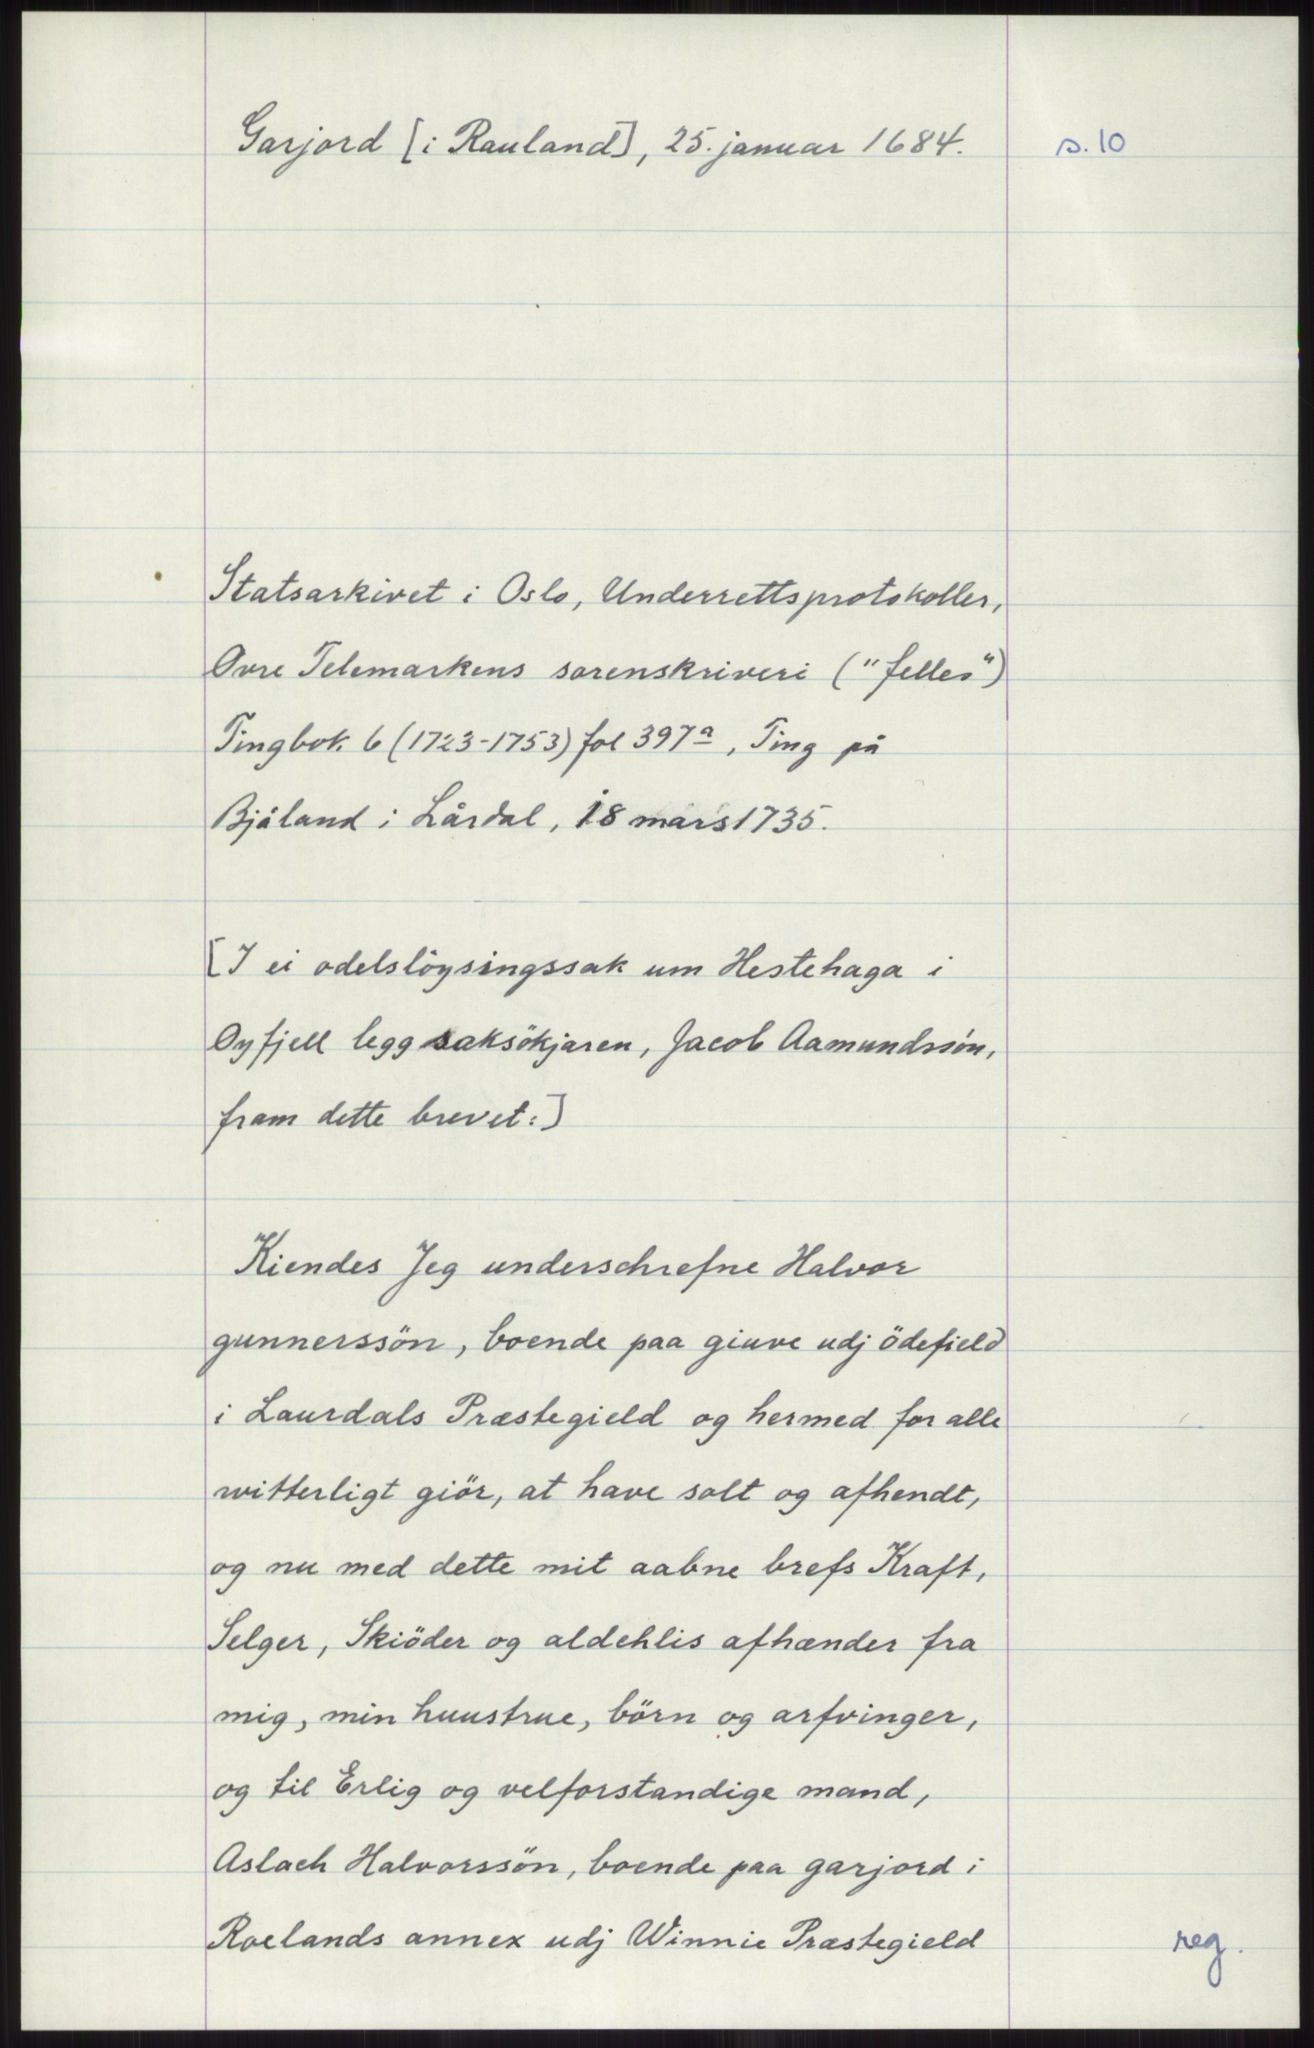 Garjord [i Rauland], 25. januar 1684.
s. 10
Statsarkivet i Oslo, Underrettsprotokoller,
Øvre Telemarkens sorenskriveri ("felles")
Tingbok 6 (1723-1753) fol 397a, Ting på
Bjåland i Lårdal, 18 mars 1735.
[I ei odelslöysingssak um Hestehaga i
Øyfjell legg saksökjaren, Jacob Aamundssön,
fram dette brevet:]
Kiendes Jeg underschrefne Halvor
gunnerssön, boende paa giuve udj ödefield
i Laurdals Præstegield og hermed for alle
witterligt giör, at have solt og afhendt,
og nu med dette mit aabne brefs Kraft,
Selger, Skiöder og aldehlis afhænder fra
mig, min huustrue, börn og arfvinger,
og til Erlig og velforstandige mand,
Aslach Halvorssön, boende paa garjord i
Roelands annex udj Winnie Præstegield
reg.